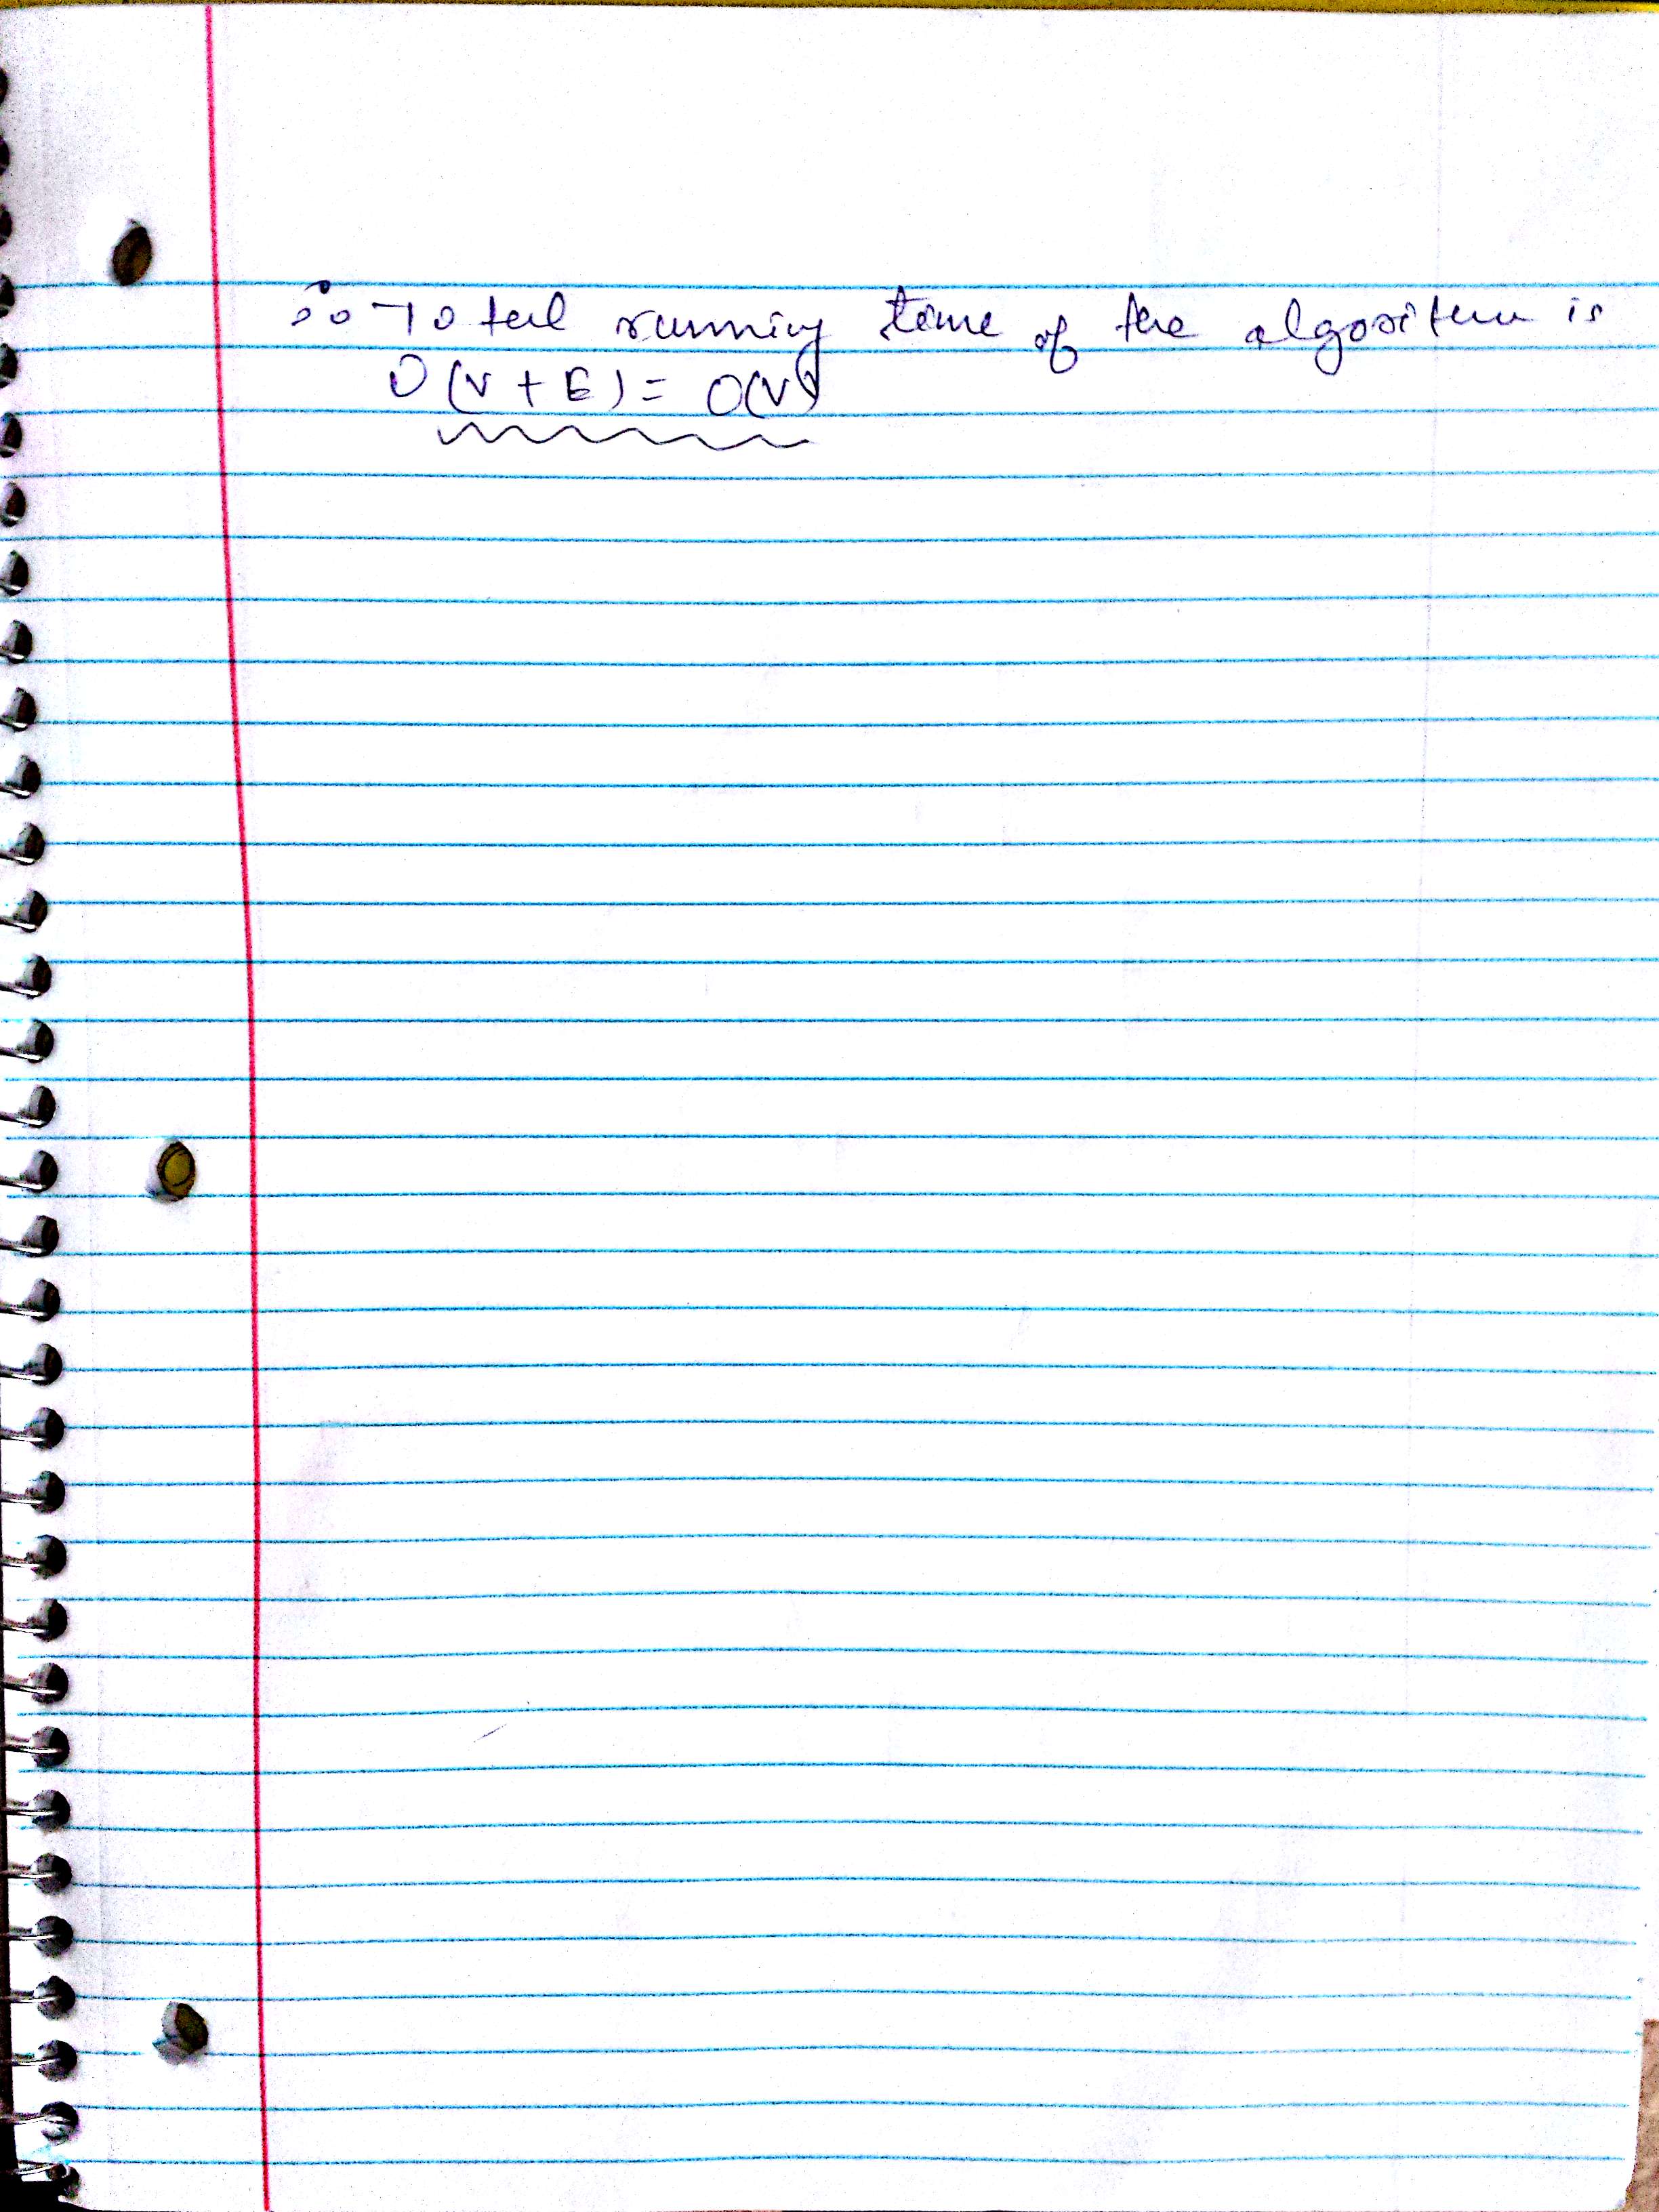 ∴ Total running time of the algorithm is
O(V+E) = O(V)